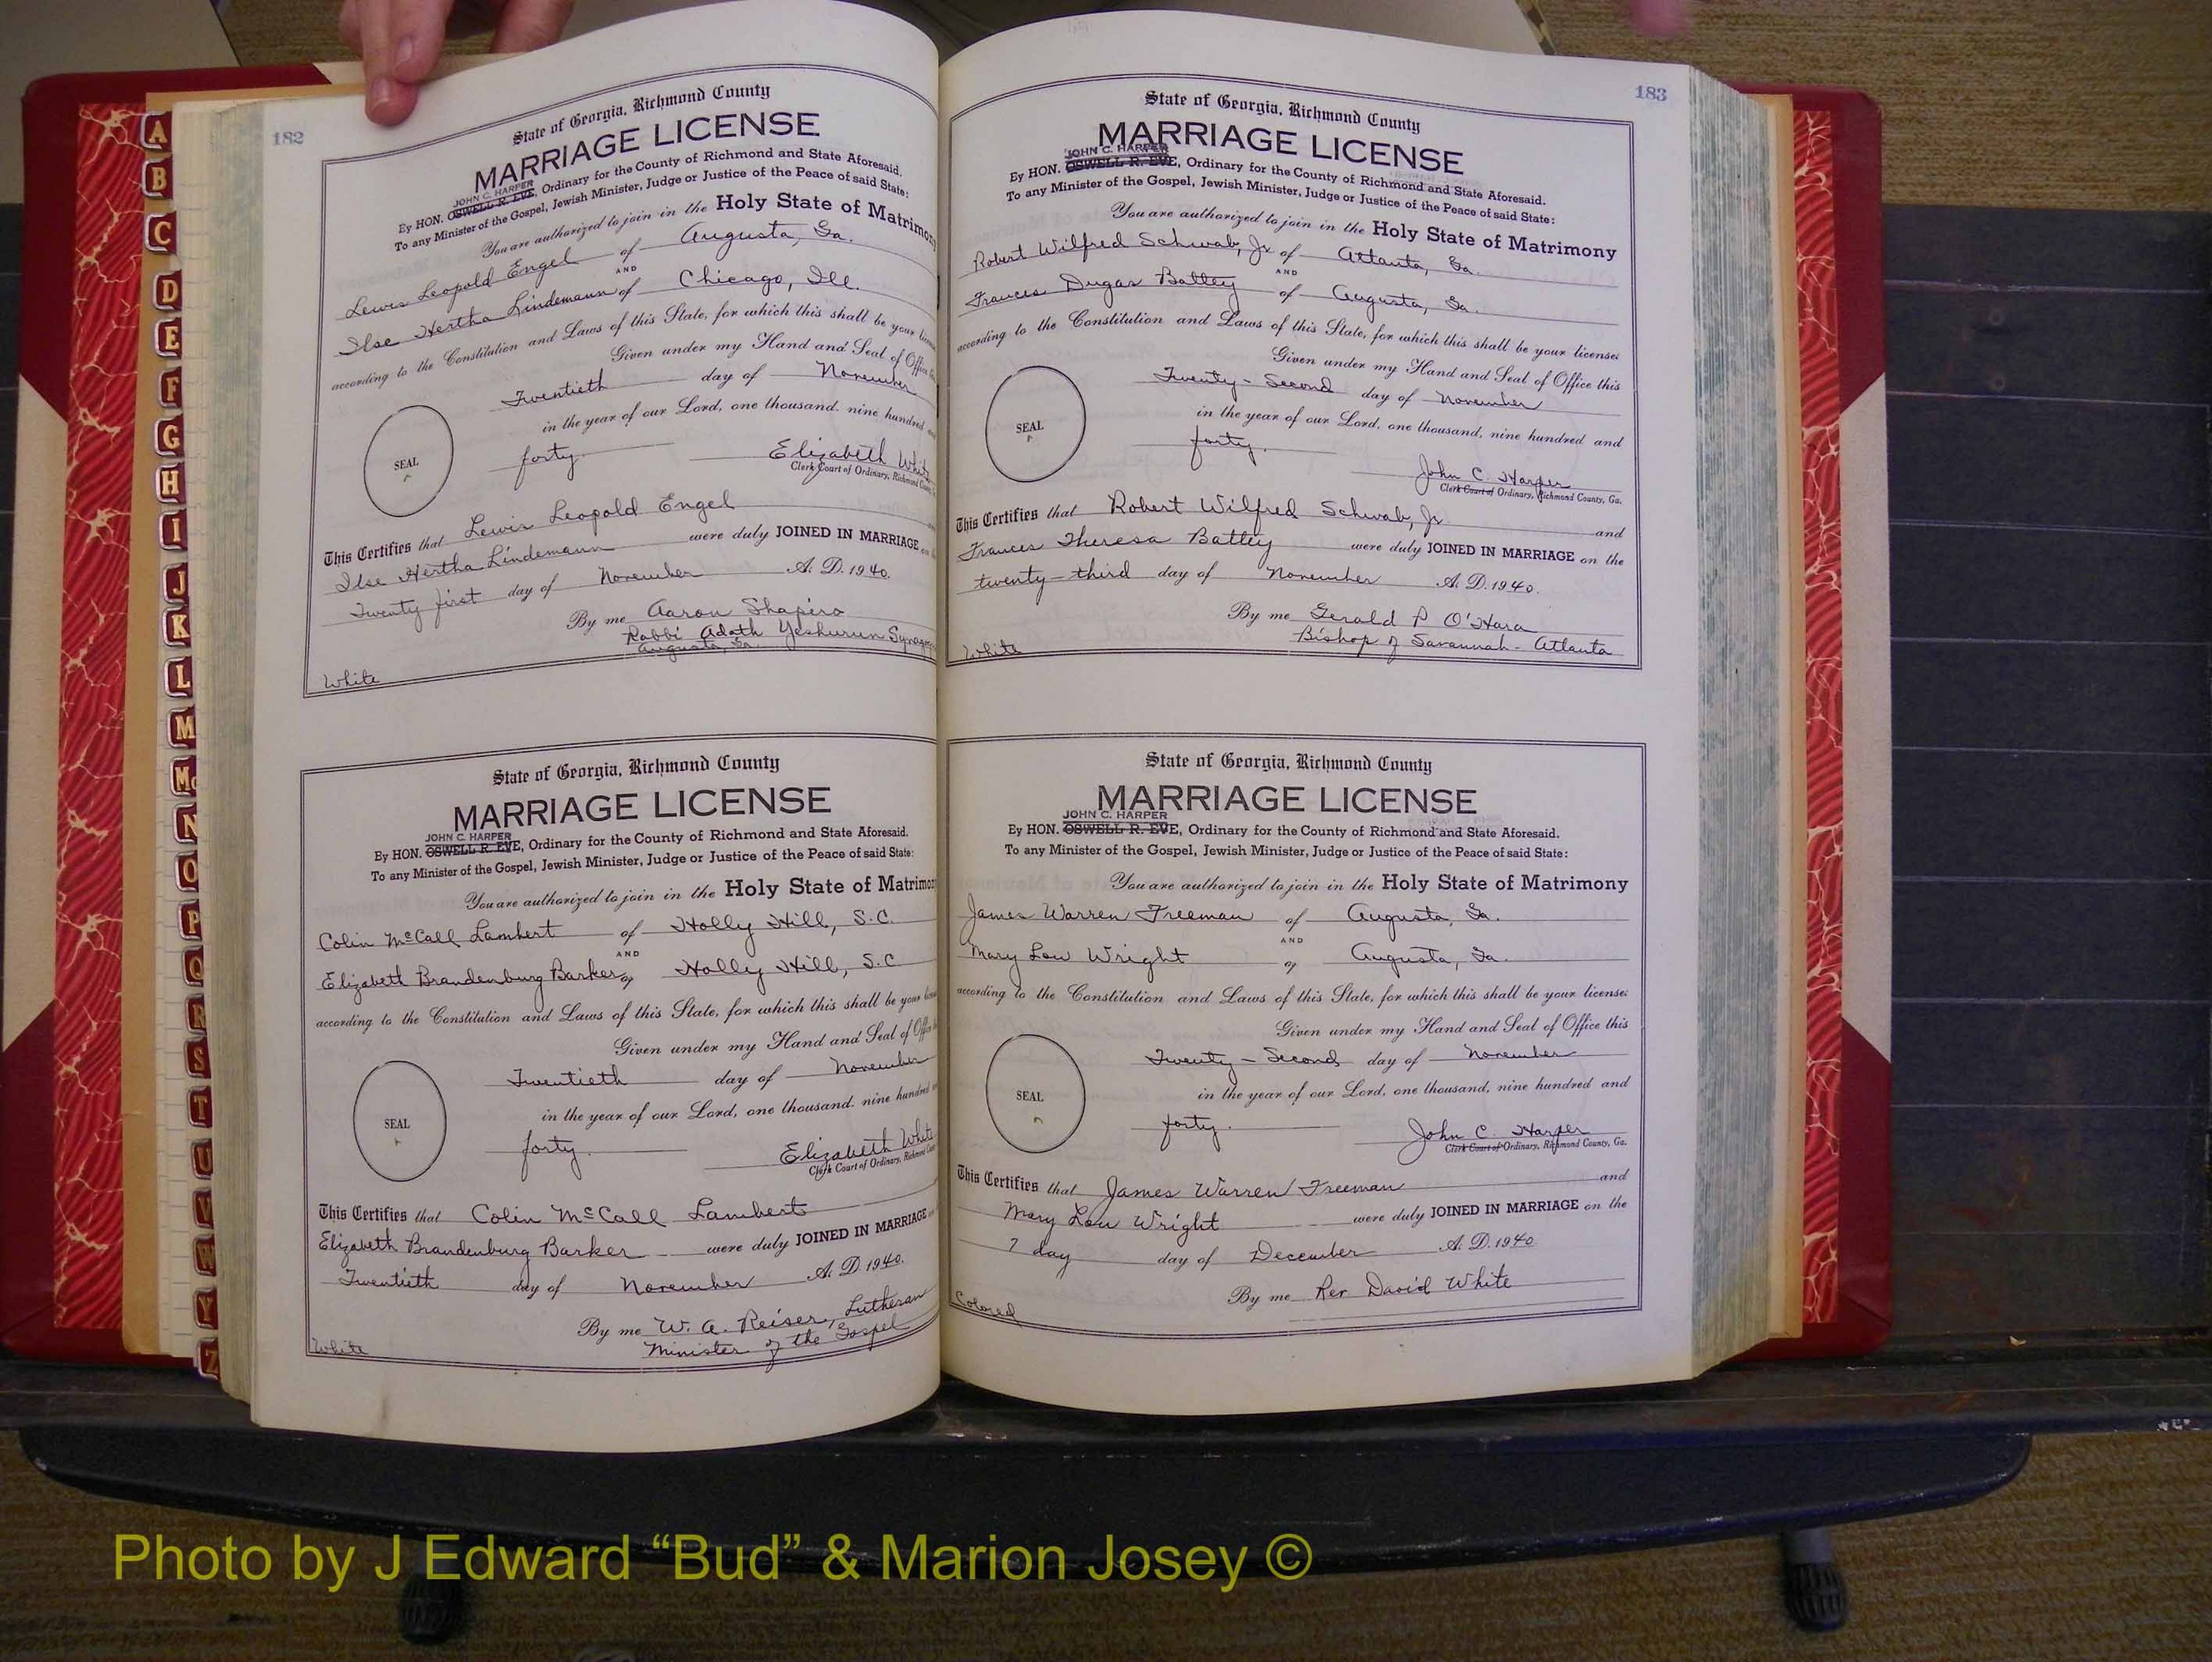 182
State of Georgia, Richmond County
MARRIAGE LICENSE
JOHN C. HARPER
By HON. OSWELL R. EVE, Ordinary for the County of Richmond and State Aforesaid.
To any Minister of the Gospel, Jewish Minister, Judge or Justice of the Peace of said State:
You are authorized to join in the Holy State of Matrimony
Lewis Leopold Engel of Augusta, Ga.
AND
Ilse Hertha Lindemann of Chicago, Ill.
according to the Constitution and Laws of this State, for which this shall be your
Given under my Hand and Seal of Office
Twentieth day of November
in the year of our Lord, one thousand, nine hundred
SEAL
forty.
Elizabeth White
Clerk Court of Ordinary, Richmond County,
This Certifies that Lewis Leopold Engel
Ilse Hertha Lindemann were duly JOINED IN MARRIAGE
Twenty first day of November A. D. 1940.
By me Aaron Shapiro
Rabbi Adath Yeshurun
Augusta, Ga.
White
State of Georgia, Richmond County
MARRIAGE LICENSE
JOHN C. HARPER
By HON. OSWELL R. EVE, Ordinary for the County of Richmond and State Aforesaid.
To any Minister of the Gospel, Jewish Minister, Judge or Justice of the Peace of said State:
You are authorized to join in the Holy State of Matrimony
Colin McCall Lambert of Holly Hill, S.C.
AND
Elizabeth Brandenburg Barker of Holly Hill, S.C
according to the Constitution and Laws of this State, for which this shall be your
Given under my Hand and Seal of Office
Twentieth day of November
in the year of our Lord, one thousand, nine hundred
SEAL
forty.
Elizabeth White
Clerk Court of Ordinary, Richmond
This Certifies that Colin McCall Lambert
Elizabeth Brandenburg Barker were duly JOINED IN MARRIAGE
Twentieth day of November A. D. 1940.
By me W. A. Reiser, Lutheran
Minister of the Gospel
White
183
State of Georgia, Richmond County
MARRIAGE LICENSE
JOHN C. HARPER
By HON. OSWELL R. EVE, Ordinary for the County of Richmond and State Aforesaid.
To any Minister of the Gospel, Jewish Minister, Judge or Justice of the Peace of said State:
You are authorized to join in the Holy State of Matrimony
Robert Wilfred Schwab, Jr of Atlanta, Ga.
AND
Frances Dugas Battey of Augusta, Ga.
according to the Constitution and Laws of this State, for which this shall be your license:
Given under my Hand and Seal of Office this
Twenty-Second day of November
in the year of our Lord, one thousand, nine hundred and
SEAL
forty.
John C. Harper
Clerk Court of Ordinary, Richmond County, Ga.
This Certifies that Robert Wilfred Schwab, Jr and
Frances Theresa Battey were duly JOINED IN MARRIAGE on the
twenty-third day of November A. D. 1940.
By me Gerald P O'Hara
Bishop of Savannah-Atlanta
White
State of Georgia, Richmond County
MARRIAGE LICENSE
JOHN C. HARPER
By HON. OSWELL R. EVE, Ordinary for the County of Richmond and State Aforesaid.
To any Minister of the Gospel, Jewish Minister, Judge or Justice of the Peace of said State:
You are authorized to join in the Holy State of Matrimony
James Warren Freeman of Augusta, Ga.
AND
Mary Lou Wright of Augusta, Ga.
according to the Constitution and Laws of this State, for which this shall be your license:
Given under my Hand and Seal of Office this
Twenty-Second day of November
in the year of our Lord, one thousand, nine hundred and
SEAL
forty.
John C. Harper
Clerk Court of Ordinary, Richmond County, Ga.
This Certifies that James Warren Freeman and
Mary Lou Wright were duly JOINED IN MARRIAGE on the
7 day day of December A. D. 1940
By me Rev David White
Colored
A
B
C
D
E
F
G
H
I
J
K
L
M
Mc
N
O
P
Q
R
S
T
U
V
W
Y
Z
Photo by J Edward “Bud” & Marion Josey ©